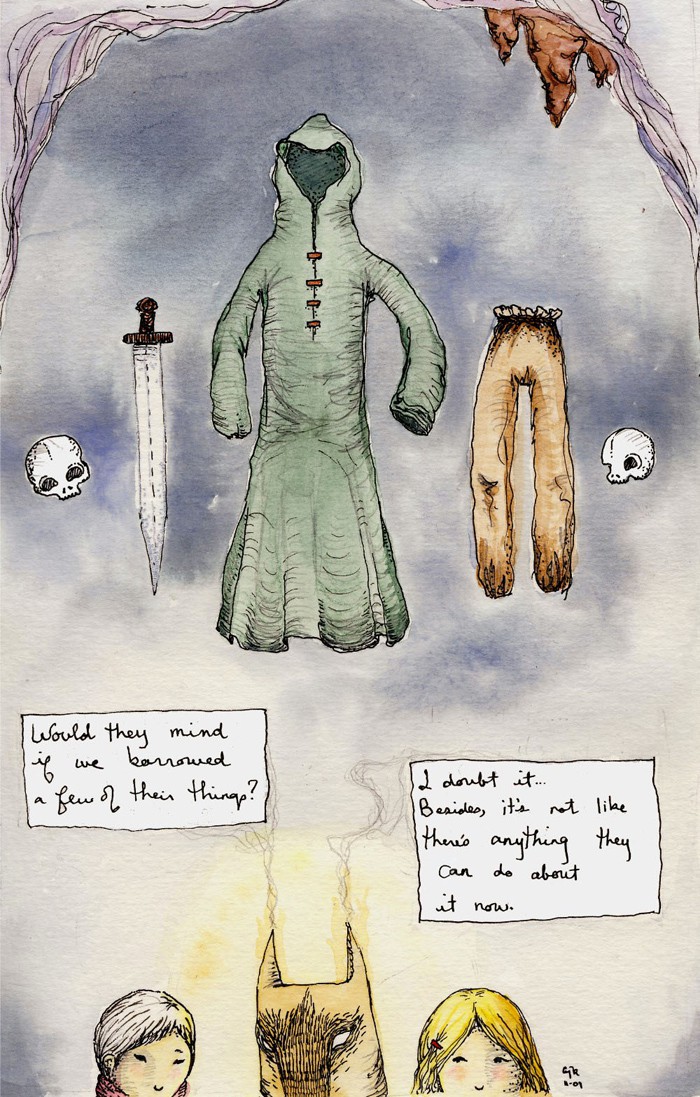 Would they mind
if we borrowed
a few of their things?
I doubt it...
Besides, it's not like
there's anything they
can do about
it now.
11-09